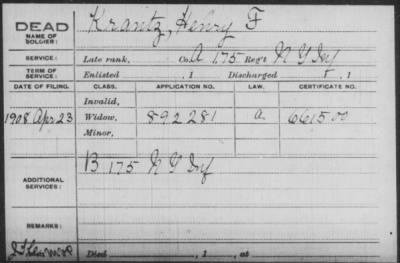 DEAD Krantz, Henry F
NAME OF SOLDIER:
SERVICE: Late rank, Co. A 175 Reg't N Y Inf
TERM OF SERVICE: Enlisted , 1 Discharged , 1
DATE OF FILING. CLASS. APPLICATION NO. LAW. CERTIFICATE NO.
Invalid,
1908 Apr 23 Widow, 892281 a. 661500
Minor,
ADDITIONAL SERVICES: B 175 N Y Inf
REMARKS:
Died , 1 , at